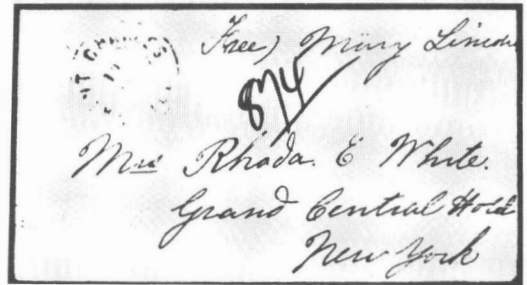 Free, Mary Lincoln
874
Mrs Rhoda. E White.
Grand Central Hotel
New York